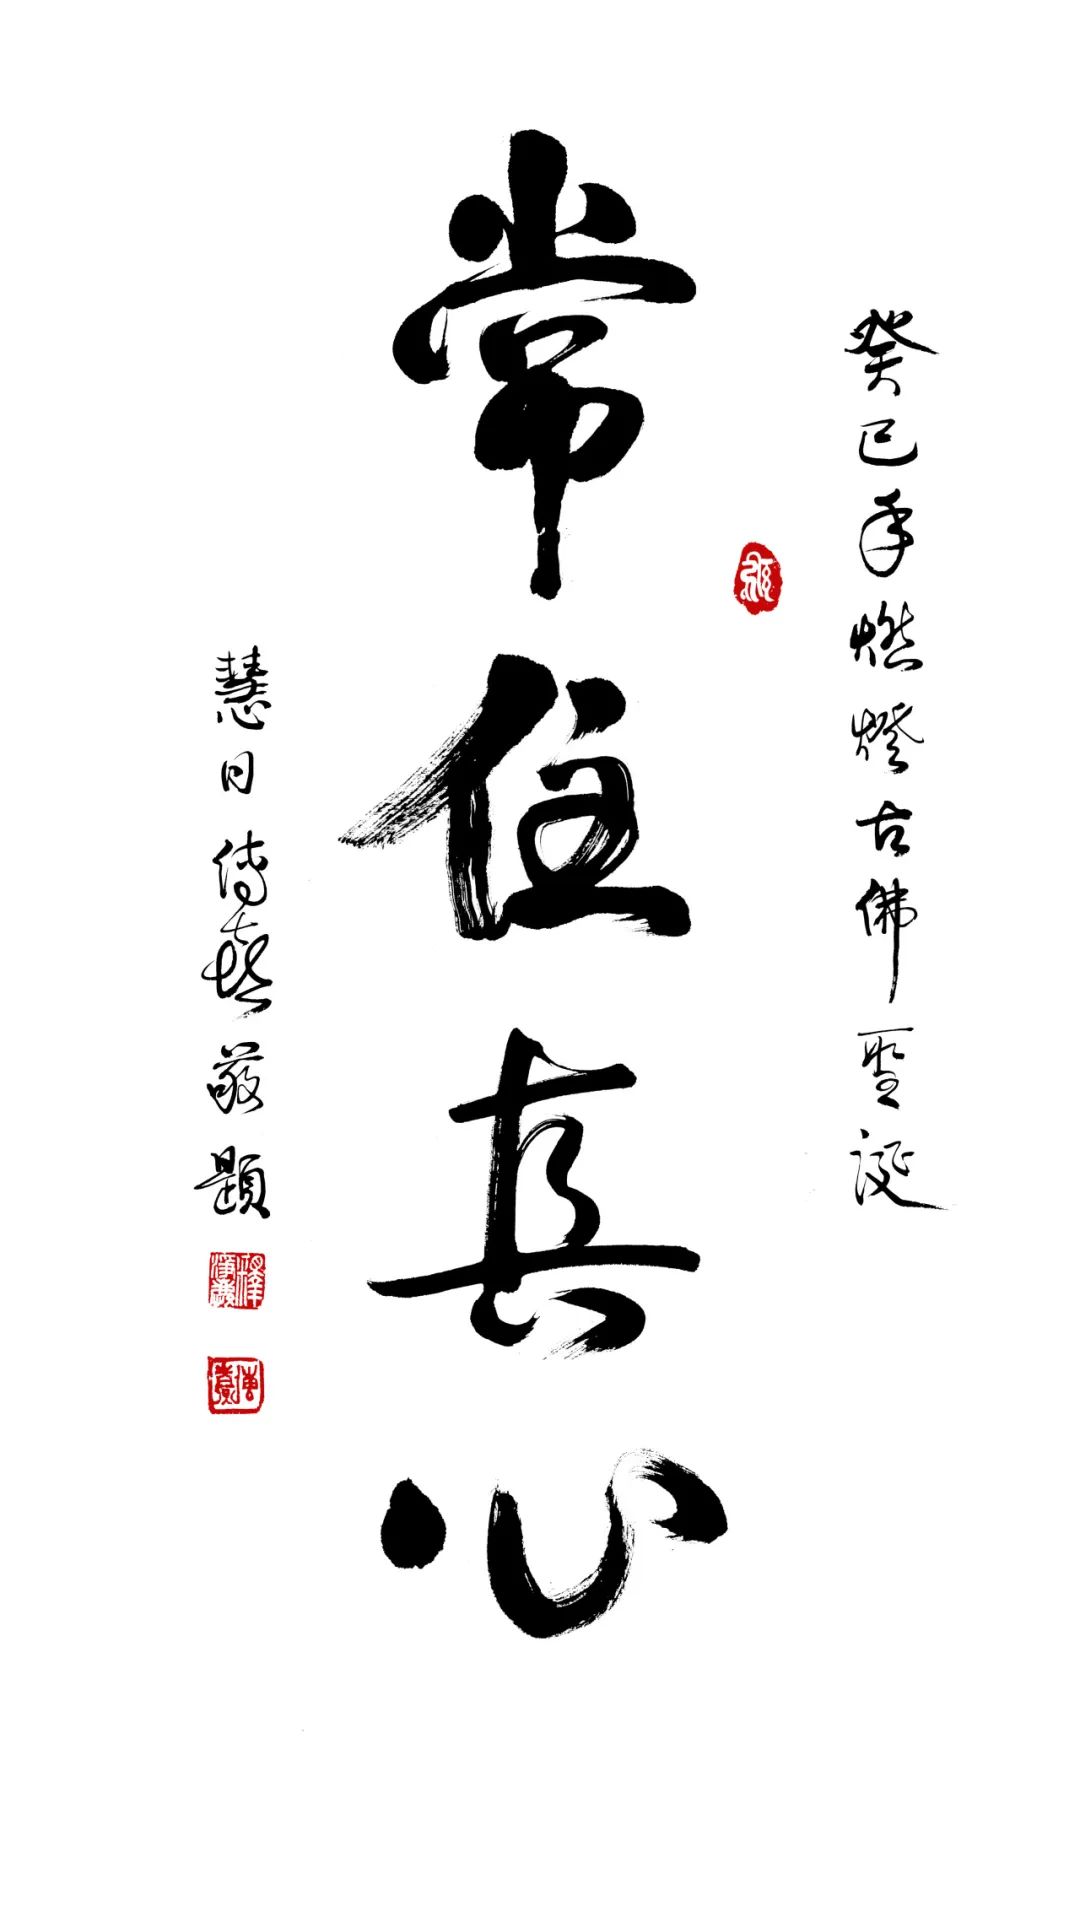 癸巳年燃燈古佛聖誕
常住真心
慧日傳喜敬題